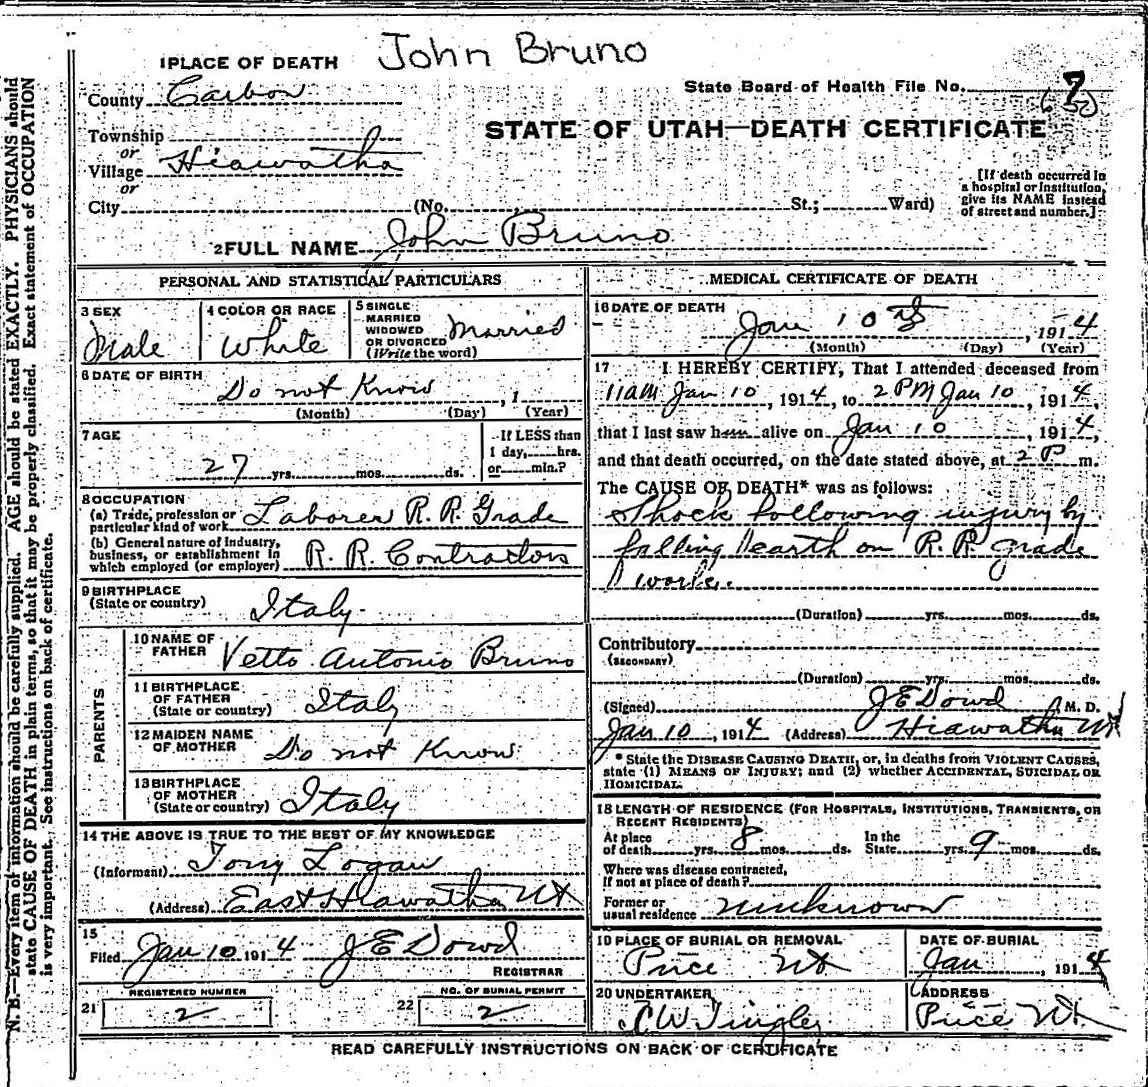 John Bruno
1 PLACE OF DEATH
County Carbon
State Board of Health File No. 7
Township
or
Village Hiawatha
or
City (No. St.; Ward)
STATE OF UTAH—DEATH CERTIFICATE
[If death occurred in
a hospital or institution,
give its NAME instead
of street and number.]
2 FULL NAME John Bruno
PERSONAL AND STATISTICAL PARTICULARS
3 SEX
Male
4 COLOR OR RACE
White
5 SINGLE
MARRIED
WIDOWED
OR DIVORCED
(Write the word)
Married
6 DATE OF BIRTH
Do not Know , 1
(Month) (Day) (Year)
7 AGE
27 yrs. mos. ds.
If LESS than
1 day, hrs.
or min.?
8 OCCUPATION
(a) Trade, profession or
particular kind of work Laborer R.R. Grade
(b) General nature of industry,
business, or establishment in
which employed (or employer) R.R. Contractors
9 BIRTHPLACE
(State or country) Italy
PARENTS
10 NAME OF
FATHER Vetto Antonio Bruno
11 BIRTHPLACE
OF FATHER
(State or country) Italy
12 MAIDEN NAME
OF MOTHER Do not Know
13 BIRTHPLACE
OF MOTHER
(State or country) Italy
14 THE ABOVE IS TRUE TO THE BEST OF MY KNOWLEDGE
(Informant) Tony Logan
(Address) East Hiawatha Ut
15
Filed Jan 10 1914 J E Dowd
REGISTRAR
21 REGISTERED NUMBER
2
22 NO. OF BURIAL PERMIT
2
MEDICAL CERTIFICATE OF DEATH
16 DATE OF DEATH
Jan 10 , 1914
(Month) (Day) (Year)
17 I HEREBY CERTIFY, That I attended deceased from
11 AM Jan 10 , 1914, to 2 PM Jan 10 , 1914,
that I last saw him alive on Jan 10 , 1914,
and that death occurred, on the date stated above, at 2 P m.
The CAUSE OF DEATH* was as follows:
Shock following injury by
falling earth on R.R. grade
work.
(Duration) yrs. mos. ds.
Contributory
(SECONDARY)
(Duration) yrs. mos. ds.
(Signed) J E Dowd M. D.
Jan 10 , 1914 (Address) Hiawatha Ut
* State the DISEASE CAUSING DEATH, or, in deaths from VIOLENT CAUSES,
state (1) MEANS OF INJURY; and (2) whether ACCIDENTAL, SUICIDAL OR
HOMICIDAL.
18 LENGTH OF RESIDENCE (FOR HOSPITALS, INSTITUTIONS, TRANSIENTS, OR
RECENT RESIDENTS)
At place
of death yrs. 8 mos. ds.
In the
State yrs. 9 mos. ds.
Where was disease contracted,
if not at place of death?
Former or
usual residence unknown
19 PLACE OF BURIAL OR REMOVAL
Price Ut
DATE OF BURIAL
Jan , 1914
20 UNDERTAKER
J W Tingley
ADDRESS
Price Ut
READ CAREFULLY INSTRUCTIONS ON BACK OF CERTIFICATE
N. B.—Every item of information should be carefully supplied. AGE should be stated EXACTLY. PHYSICIANS should
state CAUSE OF DEATH in plain terms, so that it may be properly classified. Exact statement of OCCUPATION
is very important. See instructions on back of certificate.